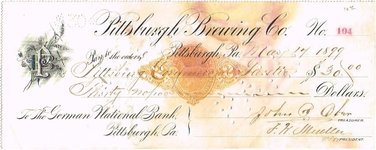 Pittsburgh Brewing Co. No. 104
Pittsburgh, Pa. May 27 1899
Pay to the order of
Pittsburg $30.00
Thirty no/100 Dollars.
To The German National Bank,
John P. Ober
TREASURER.
Pittsburgh, Pa.
F. W. Mueller
PRESIDENT.